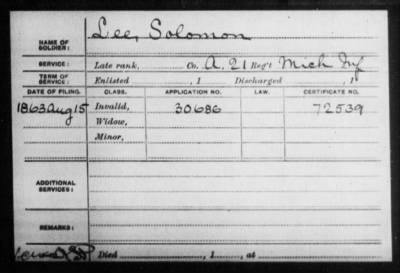 NAME OF SOLDIER: Lee, Solomon
SERVICE: Late rank, Co. A, 21 Reg't Mich Inf
TERM OF SERVICE: Enlisted , 1 Discharged , 1
DATE OF FILING. CLASS. APPLICATION NO. LAW. CERTIFICATE NO.
1863 Aug 15 Invalid, 30686 72539
Widow,
Minor,
ADDITIONAL SERVICES:
REMARKS:
Died , 1 , at